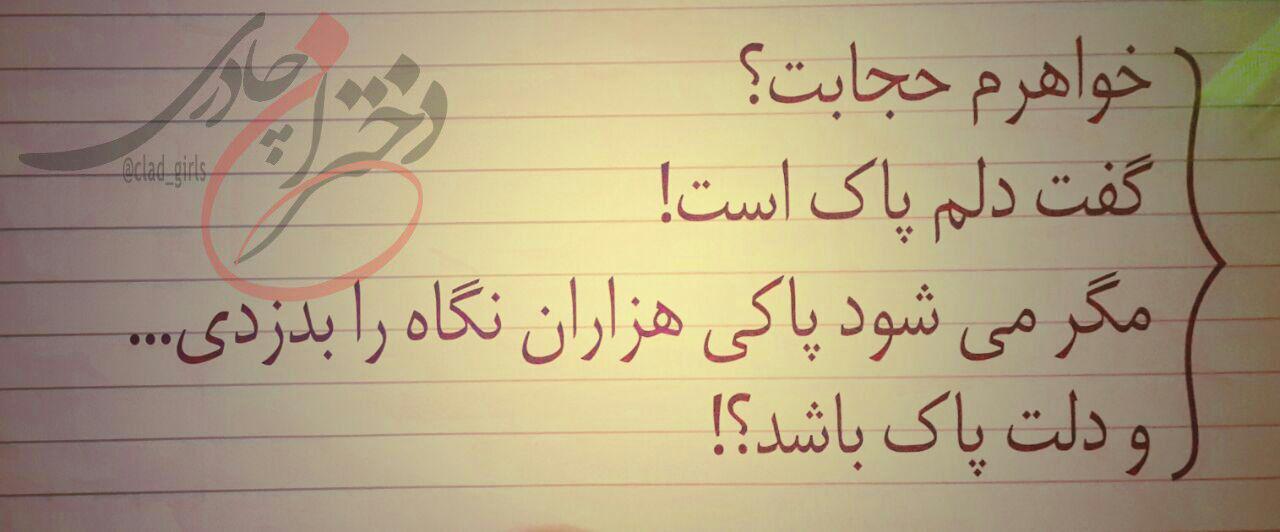 خواهرم حجابت؟
گفت دلم پاک است!
مگر می شود پاکی هزاران نگاه را بدزدی...
و دلت پاک باشد؟!
دختران چادری
@clad_girls